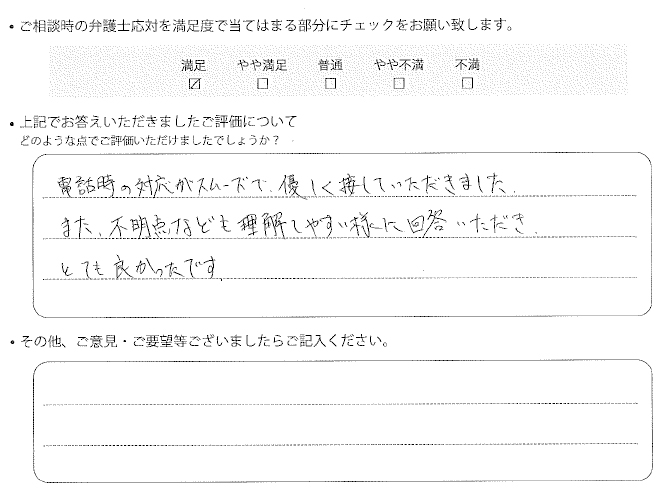 ・ご相談時の弁護士応対を満足度で当てはまる部分にチェックをお願い致します。
満足 やや満足 普通 やや不満 不満
☑ ☐ ☐ ☐ ☐
・上記でお答えいただきましたご評価について
どのような点でご評価いただけましたでしょうか？
電話時の対応がスムーズで、優しく接していただきました。
また、不明点なども理解しやすい様に回答いただき、
とても良かったです
・その他、ご意見・ご要望等ございましたらご記入ください。